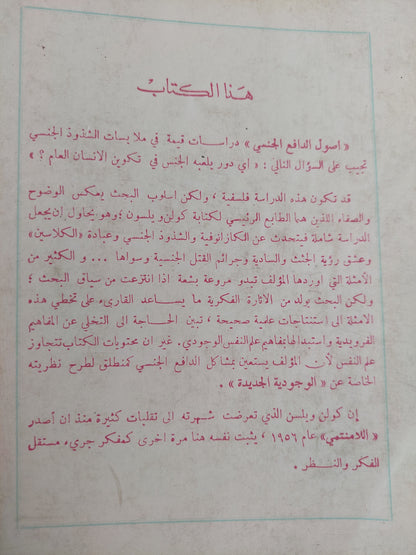 هَذا الكتابْ
« اصول الدافع الجنسي » دراسات قيمة في ملابسات الشذوذ الجنسي
تجيب على السؤال التالي : « أي دور يلعبه الجنس في تكوين الانسان العام ؟ »
قد تكون هذه الدراسة فلسفية ، ولكن اسلوب البحث يعكس الوضوح
والصفاء اللذين هما الطابع الرئيسي لكتابة كولن ويلسون ؛ وهو يحاول إن يجعل
الدراسة شاملة فيتحدث عن الكازانوفية والشذوذ الجنسي وعبادة « الكلاسين »
وعشق رؤية الجثث والسادية وجرائم القتل الجنسية وسواها ... و الكثير من
الأمثلة التي اوردها المؤلف تبدو مروعة بشعة اذا انتزعت من سياق البحث ؛
ولكن البحث يولد من الاثارة الفكرية ما يساعد القارىء على تخطي هذه
الامثلة الى إستنتاجات علمية صحيحة ؛ تبين الحاجة الى التخلي عن المفاهيم
الفرويدية واستبدالها بمفاهيم علم النفس الوجودي . غير ان محتويات الكتاب تتجاوز
علم النفس لأن المؤلف يستعين بمشاكل الدافع الجنسي كمنطلق لطرح نظريته
الخاصة عن « الوجودية الجديدة » .
إن كولن ويلسن الذي تعرضت شهرته الى تقلبات كثيرة منذ ان أصدر
« اللامنتمي » عام ١٩٥٦ ، يثبت نفسه هنا مرة اخرى كمفكر جريء مستقل
الفكر والنظر .